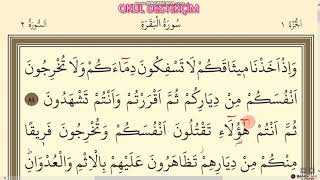 OKUL DESTEKÇİM
اَلْجُزْءُ ١
سُورَةُ الْبَقَرَةِ
اَلسُّورَةُ ٢
وَاِذْ اَخَذْنَا م۪يثَاقَكُمْ لَا تَسْفِكُونَ دِمَٓاءَكُمْ وَلَا تُخْرِجُونَ
اَنْفُسَكُمْ مِنْ دِيَارِكُمْ ثُمَّ اَقْرَرْتُمْ وَاَنْتُمْ تَشْهَدُونَ
ثُمَّ اَنْتُمْ هٰٓؤُ۬لَٓاءِ تَقْتُلُونَ اَنْفُسَكُمْ وَتُخْرِجُونَ فَر۪يقًا
مِنْكُمْ مِنْ دِيَارِهِمْۘ تَظَاهَرُونَ عَلَيْهِمْ بِالْاِثْمِ وَالْعُدْوَانِۜ